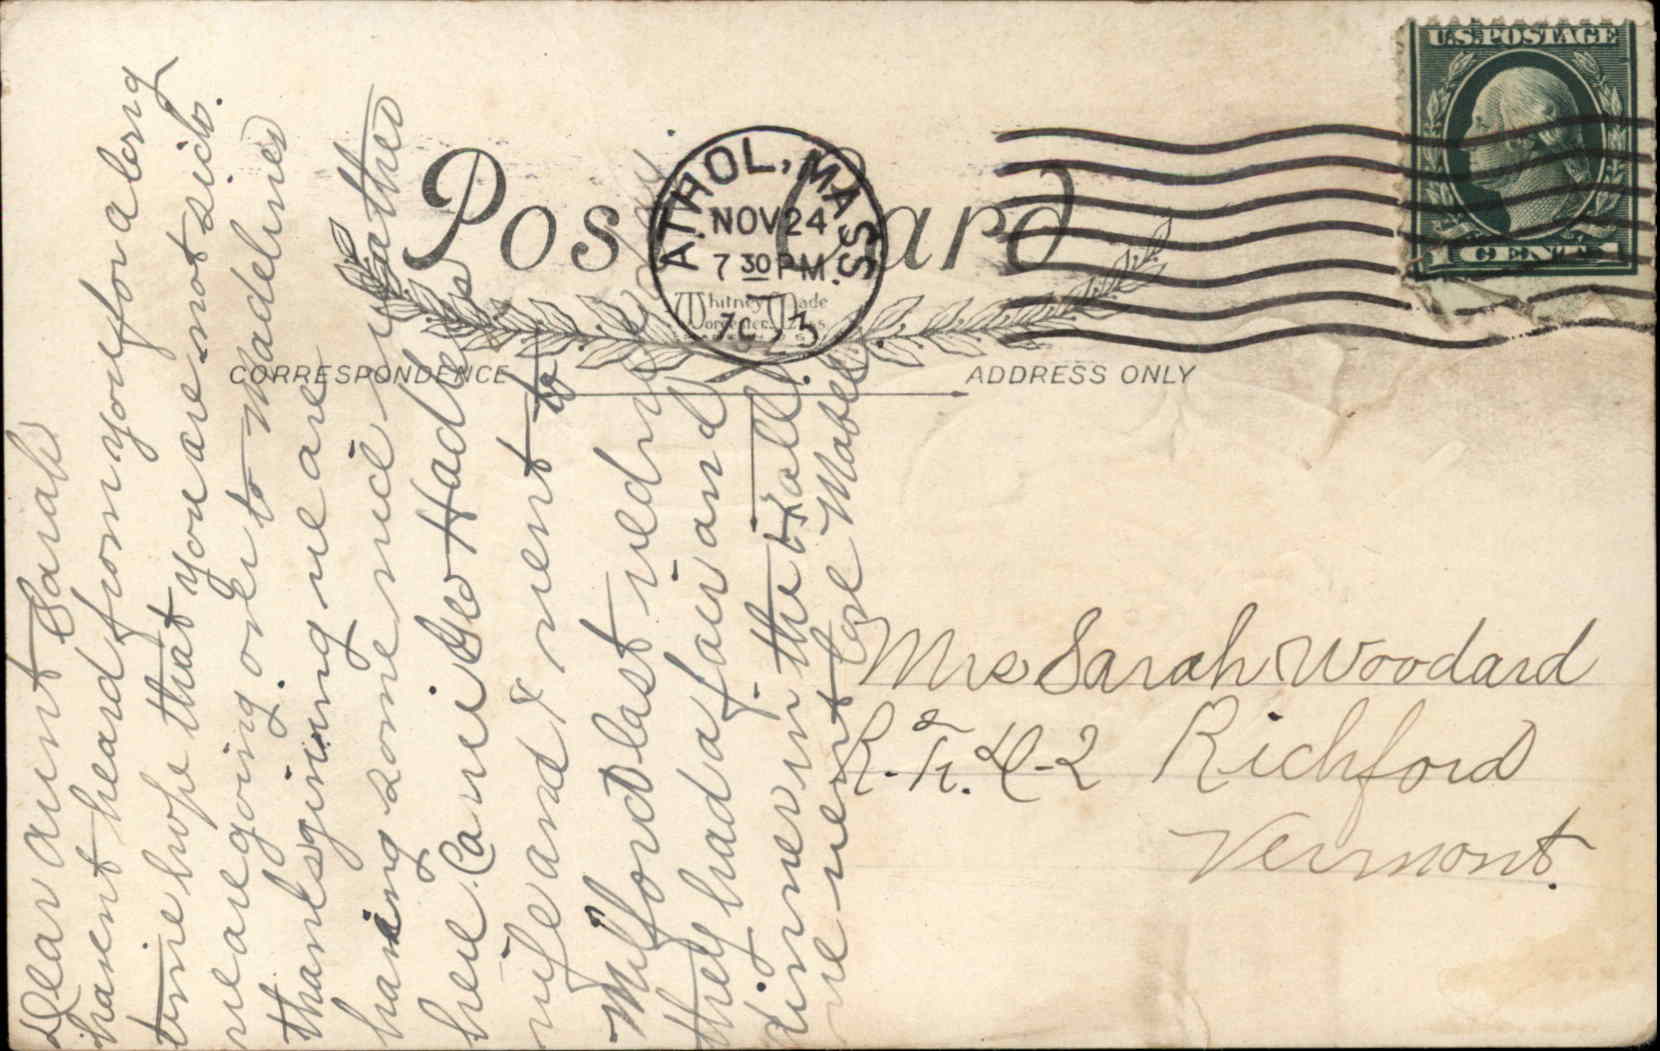 Post Card
U.S. POSTAGE
1 CENT 1
ATHOL, MASS.
NOV 24
7 30 PM
Whitney Made
Worcester, Mass
CORRESPONDENCE
ADDRESS ONLY
Dear aunt Sarah
havent heard from you for a long
time hope that you are not sick.
we are going over to Madelines
thanksgiving we are
having some nice weather
here. Carrie Geo Hadley
wife and I went to
Milford last wednesday
they had a fair and
dinner in the hall.
we went love Mabel
Mrs Sarah Woodard
R.F.D-2 Richford
Vermont.